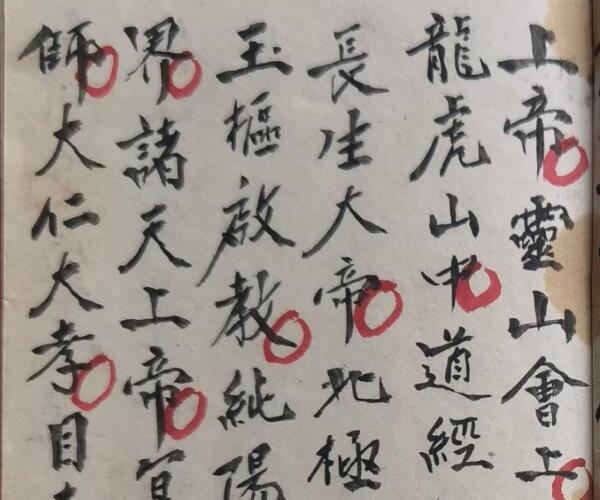 上帝靈山會上
龍虎山中道經
長生大帝北極
玉樞啟教純陽
界諸天上帝
師大仁大孝目